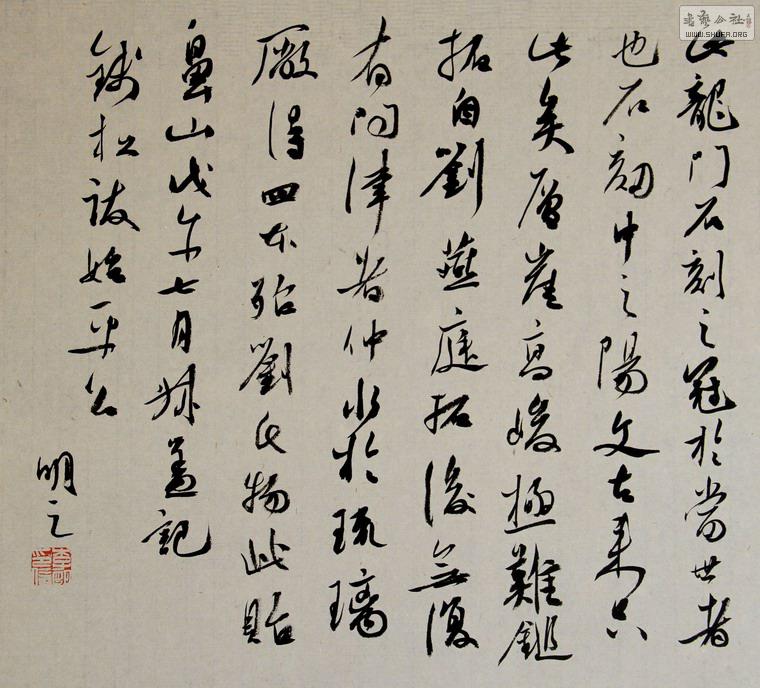 此龍门石刻之冠於當世者
也石刻中之陽文古来只
此矣層崖高峻極難鎚
拓自劉燕庭拓後無復
有问津者仲水於琉璃
廠得四本殆劉氏物此貽
鼻山戊午七月叔蓋記
錢松跋始平公
明之
書藝公社
WWW.SHUFA.ORG